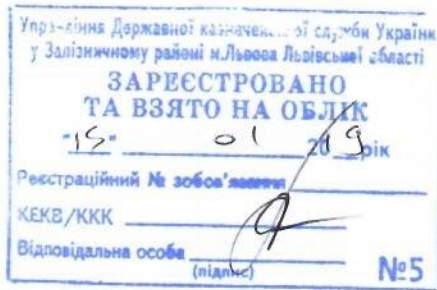 Управління Державної казначейської служби України
у Залізничному районі м.Львова Львівської області
ЗАРЕЄСТРОВАНО
ТА ВЗЯТО НА ОБЛІК
"15" 01 2019 рік
Реєстраційний № зобов'язання
КЕКВ/ККК
Відповідальна особа
(підпис)
№5